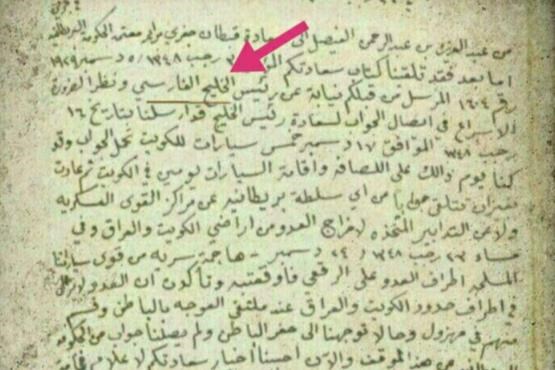 من عبد العزيز بن عبد الرحمن الفيصل الى سعادة قبطان جفري مراجر معتمد الحكومة البريطانية
اما بعد فقد تلقينا كتاب سعادتكم رجب ١٣٤٨ / ٥ دسمبر ١٩٢٩
رقم ١٦٠٤ المرسل من قبلكم نيابة عن رئيس الخليج الفارسي ونظرا لضرورة
الاسراع في ايصال الجواب لسعادة رئيس الخليج قد ارسلنا بتاريخ ١٦
رجب ١٣٤٨ الموافق ١٧ دسمبر خمس سيارات للكويت تحمل الجواب وقد
كنا يوم ذالك على اللصافه واقامة السيارات يومين في الكويت ثم عادت
بغير ان نتلقى جوابا من اي سلطة بريطانيه عن مراكز القوى العسكريه
ولا عن التدابير المتخذه لاخراج العدو من اراضي الكويت والعراق وفي
مساء ٢٣ رجب ١٣٤٨ / ٢٤ دسمبر هاجمة سريه من قوى سياراتنا
المسلحه اطراف العدو على الرقعي فاوقعت به وتأكدن ان العدو
في اطراف حدود الكويت والعراق عند ملتقى العوجه بالباطن وقسم
منهم في مهزول وحالا توجهنا الى حفر الباطن ولم يصلنا جواب من الحكومه
من هذا الموقف والان احسنا اخبار سعادتكم لاعلام